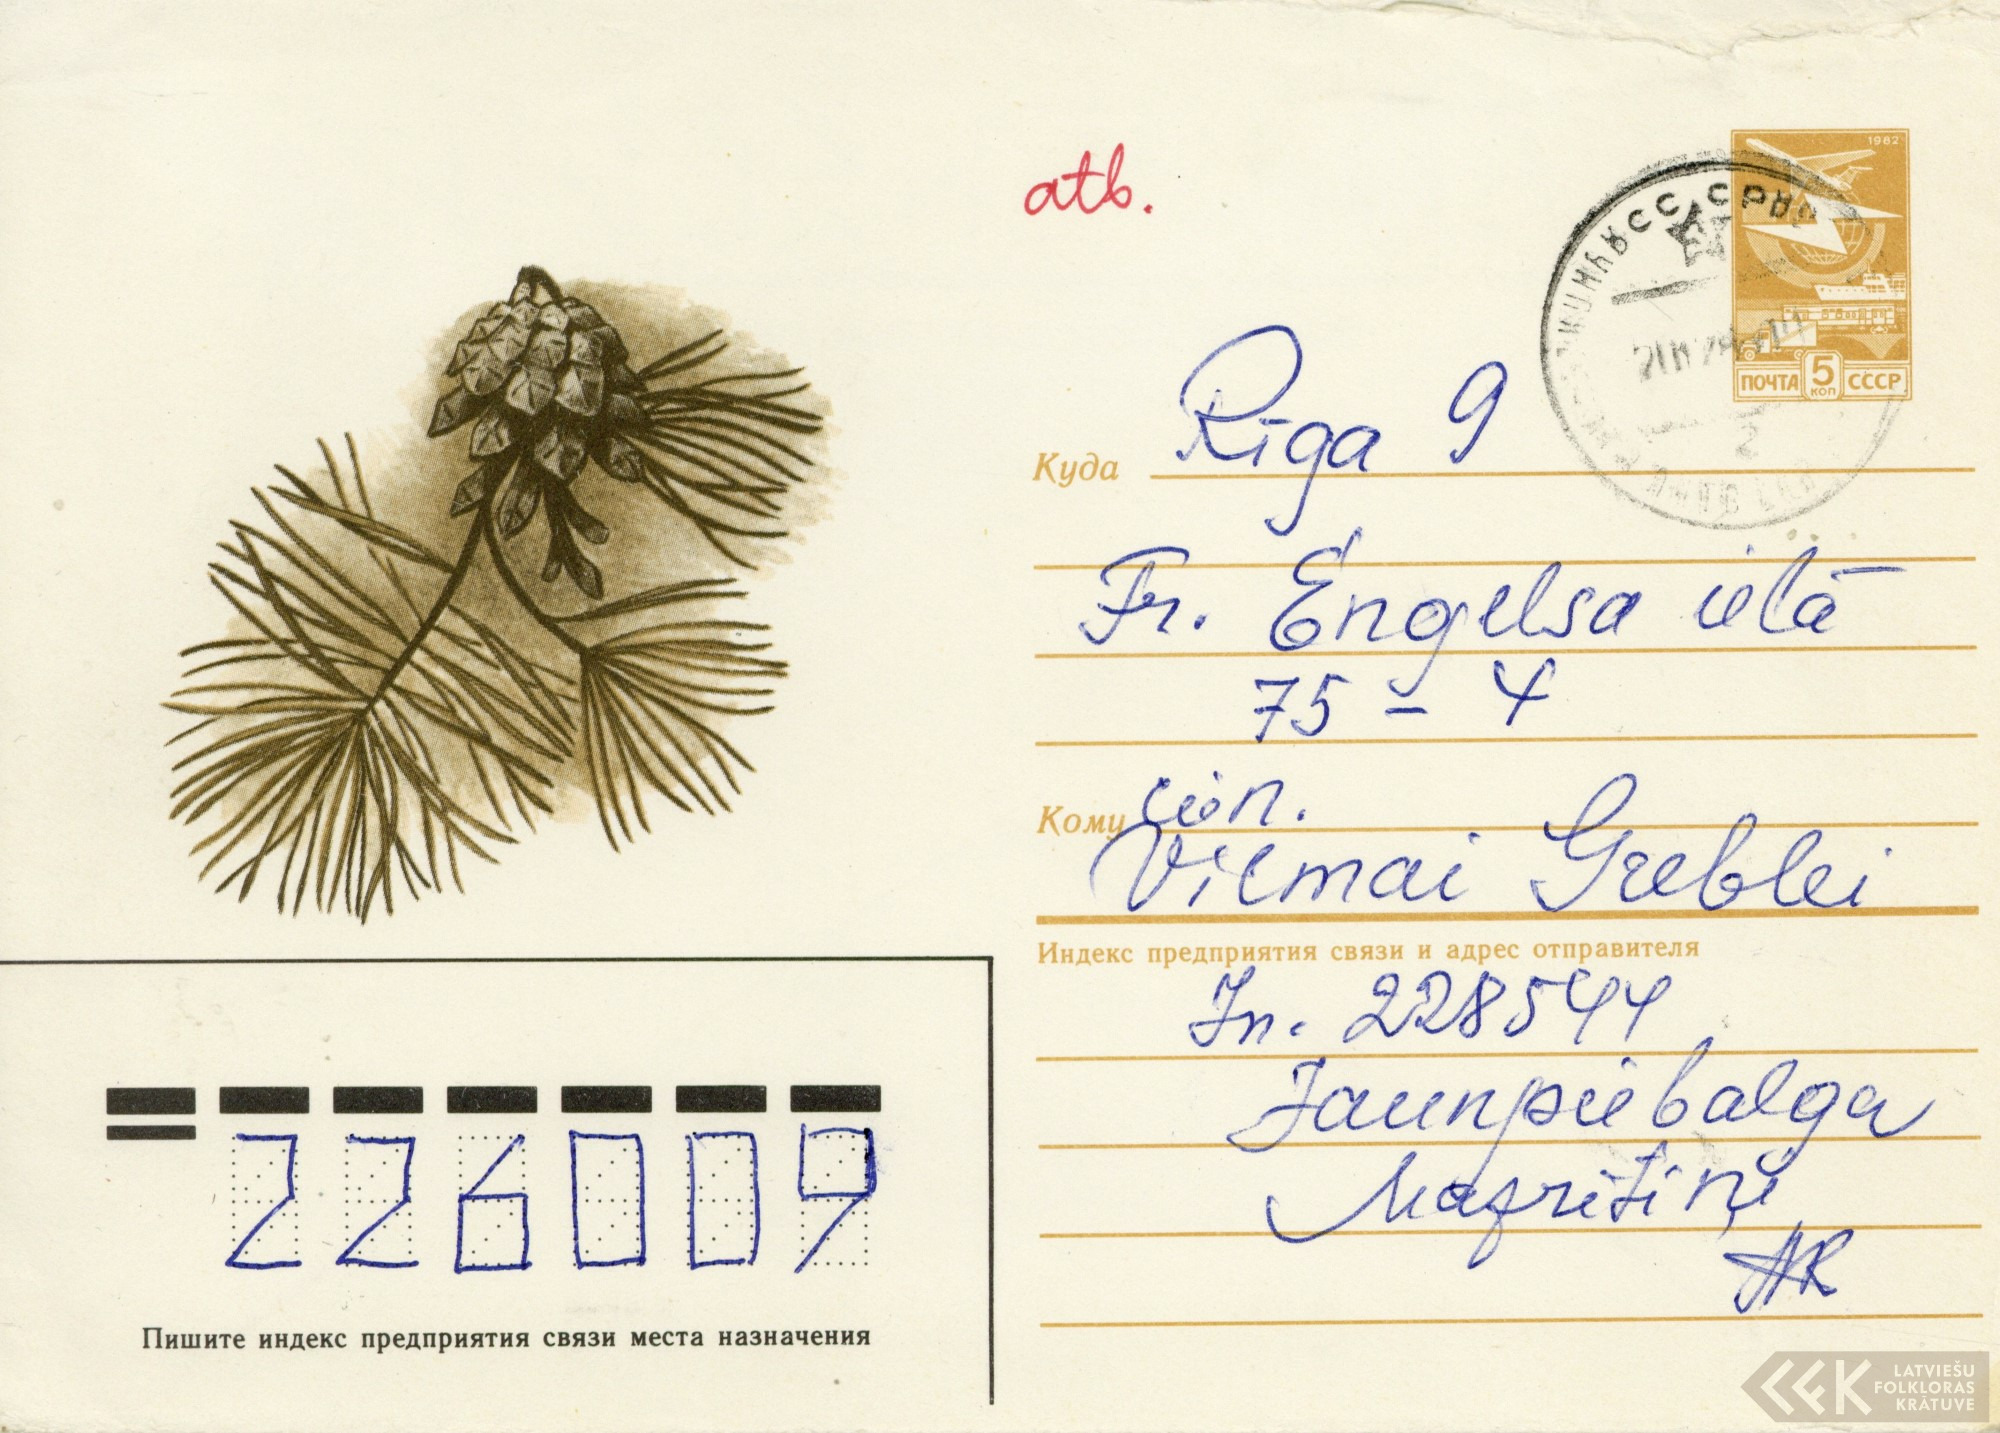 atb.
1982
ПОЧТА 5 КОП СССР
2
Куда Rīga 9
Fr. Engelsa ielā
75 - 4
Кому cien.
Vilmai Greblei
Индекс предприятия связи и адрес отправителя
In. 228544
Jaunpiebalga
226009
Пишите индекс предприятия связи места назначения
LATVIEŠU
FOLKLORAS
KRĀTUVE